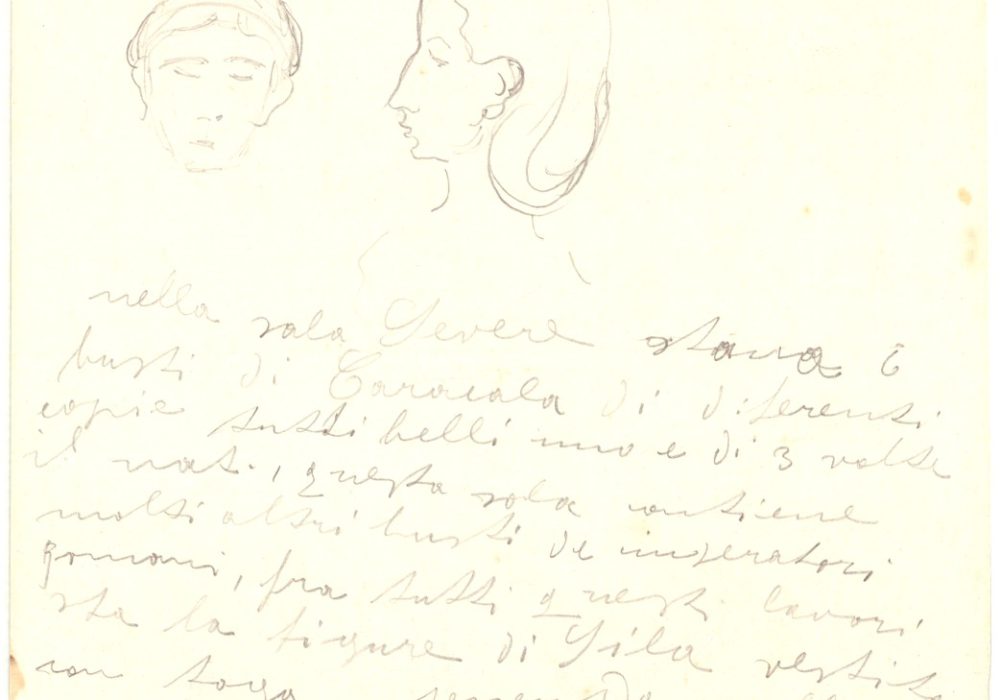 nella sala Severe stava 6
busti di Caracala di diferenti
copie tutti belli uno e di 3 volte
il nat., questa sala contiene
molti altri busti de imperatori
Romani, fra tutti questi lavori
sta la figure di Sila vestita
con toga